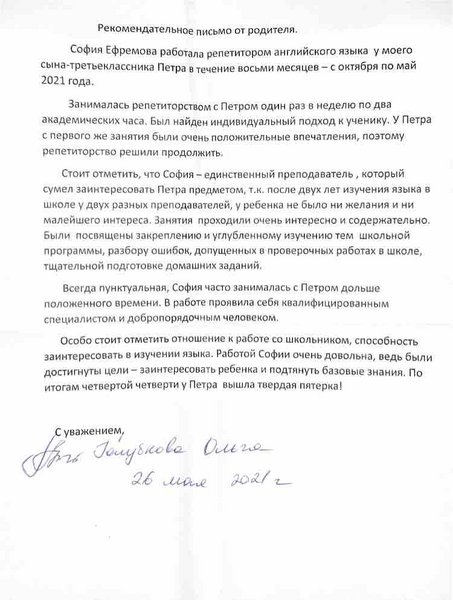 Рекомендательное письмо от родителя.
София Ефремова работала репетитором английского языка у моего
сына-третьеклассника Петра в течение восьми месяцев – с октября по май
2021 года.
Занималась репетиторством с Петром один раз в неделю по два
академических часа. Был найден индивидуальный подход к ученику. У Петра
с первого же занятия были очень положительные впечатления, поэтому
репетиторство решили продолжить.
Стоит отметить, что София – единственный преподаватель , который
сумел заинтересовать Петра предметом, т.к. после двух лет изучения языка в
школе у двух разных преподавателей, у ребенка не было ни желания и ни
малейшего интереса. Занятия проходили очень интересно и содержательно.
Были посвящены закреплению и углубленному изучению тем школьной
программы, разбору ошибок, допущенных в проверочных работах в школе,
тщательной подготовке домашних заданий.
Всегда пунктуальная, София часто занималась с Петром дольше
положенного времени. В работе проявила себя квалифицированным
специалистом и добропорядочным человеком.
Особо стоит отметить отношение к работе со школьником, способность
заинтересовать в изучении языка. Работой Софии очень довольна, ведь были
достигнуты цели – заинтересовать ребенка и подтянуть базовые знания. По
итогам четвертой четверти у Петра вышла твердая пятерка!
С уважением,
Голубкова Ольга
26 мая 2021 г